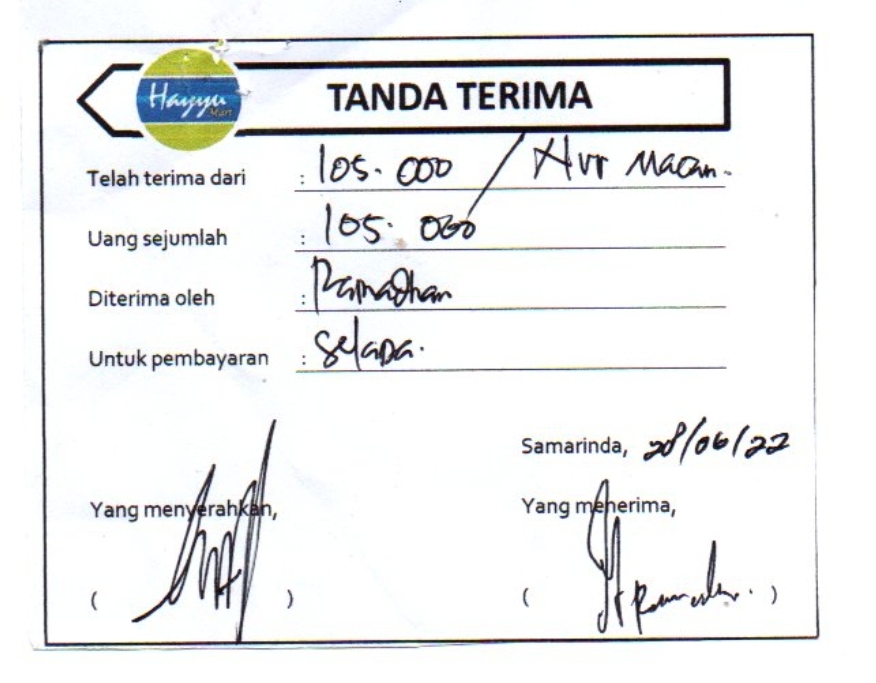 Hayyu Mart
TANDA TERIMA
Telah terima dari : 105.000 / Nur
Uang sejumlah : 105.000
Diterima oleh : Ramadhan
Untuk pembayaran : Selada.
Samarinda, 28/06/22
Yang menyerahkan, Yang menerima,
( ) ( )